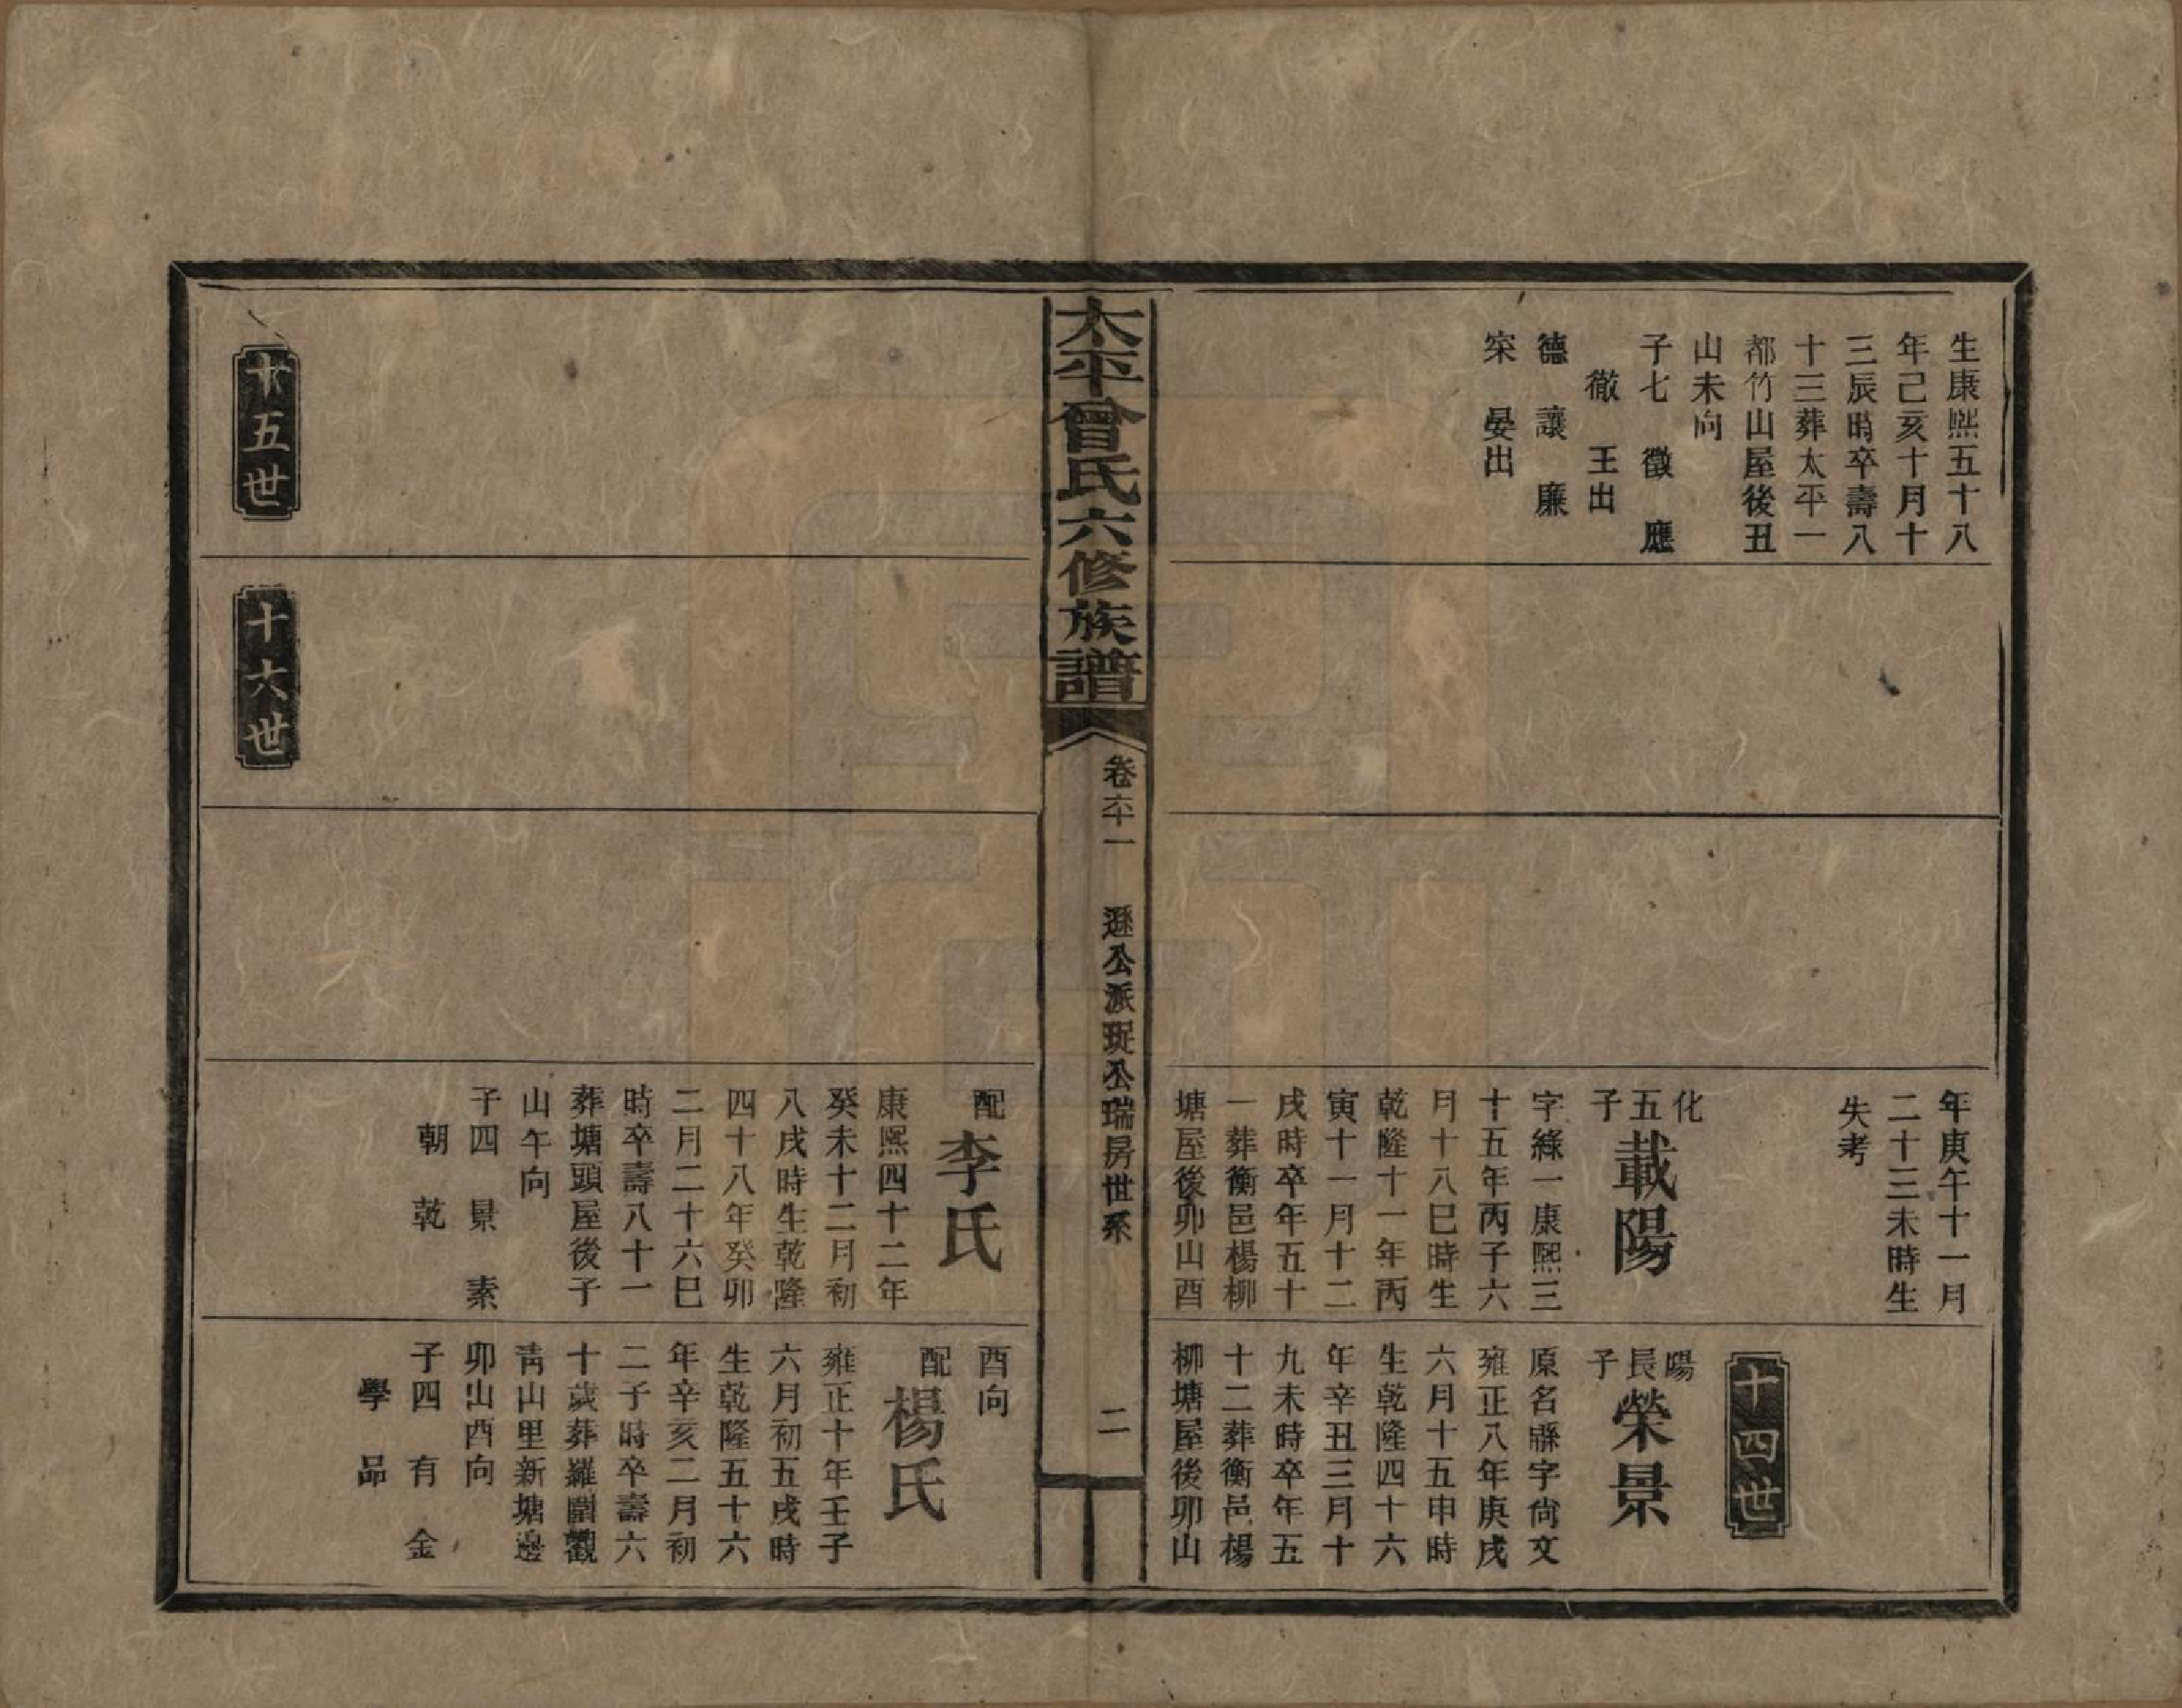 生康熙五十八
年己亥十月十
三辰時卒壽八
十三葬太平一
都竹山屋後丑
山未向
子七 徵 應
徹 王出
德 讓 廉
寀 晏出
年庚午十一月
二十三未時生
失考
化五子 載陽
字絳一康熙三
十五年丙子六
月十八巳時生
乾隆十一年丙
寅十一月十二
戌時卒年五十
一葬衡邑楊柳
塘屋後卯山酉
十四世
陽長子 榮景
原名 字尚文
雍正八年庚戌
六月十五申時
生乾隆四十六
年辛丑三月十
九未時卒年五
十二葬衡邑楊
柳塘屋後卯山
太平曾氏六修族譜
卷六十一 遜公派珽公瑞房世系 二
十五世
十六世
配李氏
康熙四十二年
癸未十二月初
八戌時生乾隆
四十八年癸卯
二月二十六巳
時卒壽八十一
葬塘頭屋後子
山午向
子四 景 素
朝 乾
酉向
配楊氏
雍正十年壬子
六月初五戌時
生乾隆五十六
年辛亥二月初
二子時卒壽六
十歲葬羅園觀
青山里新塘邊
卯山酉向
子四 有 金
學 品